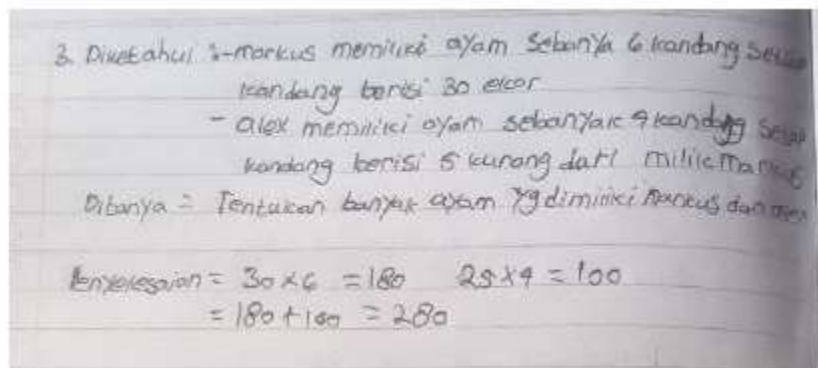 3. Diketahui :-markus memiliki ayam sebanya 6 kandang setiap
kandang berisi 30 ekor
- alex memiliki ayam sebanyak 4 kandang setiap
kandang berisi 5 kurang dari milik markus
Ditanya = Tentukan banyak ayam yg dimiliki markus dan alex
Penyelesaian = 30 x 6 = 180 25 x 4 = 100
= 180 + 100 = 280